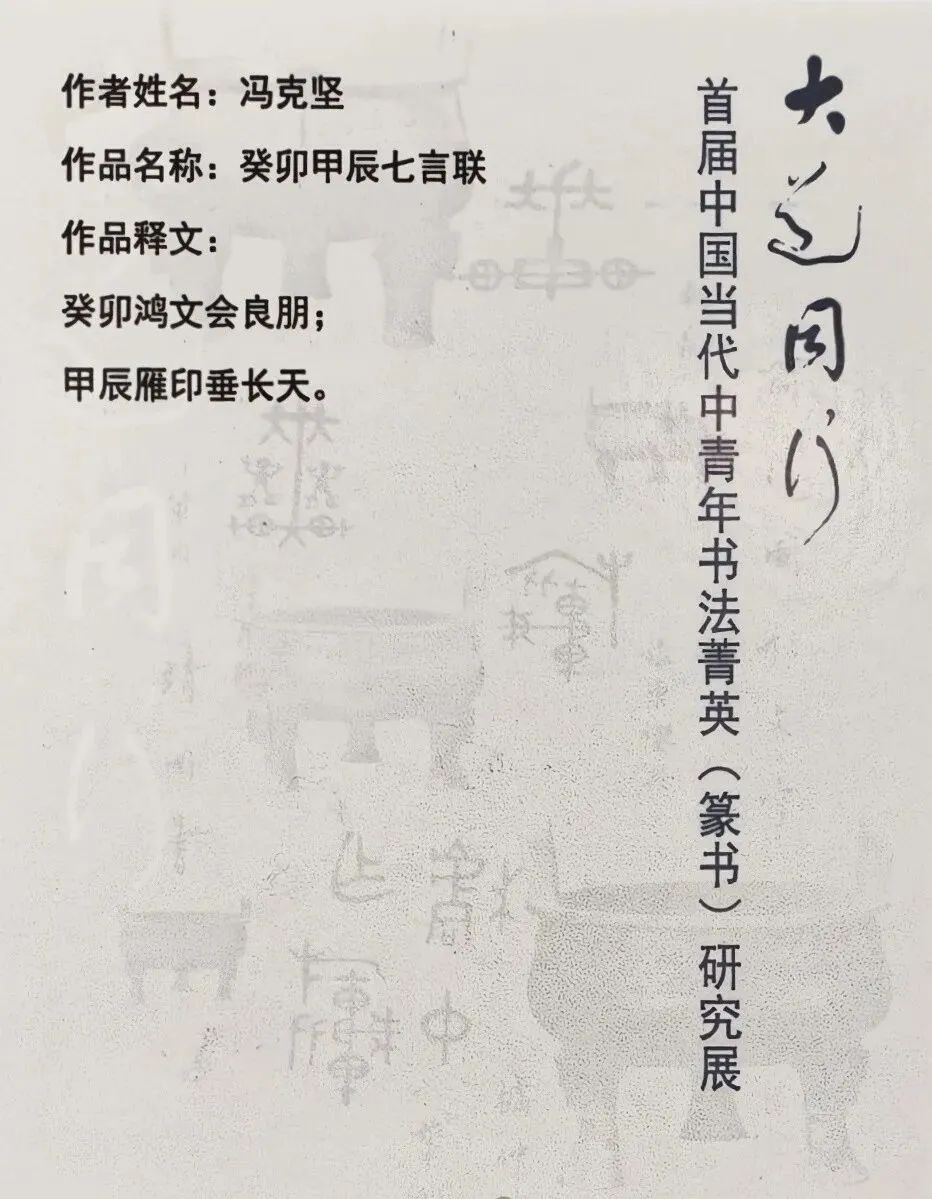 大道同行
首届中国当代中青年书法菁英（篆书）研究展
作者姓名：冯克坚
作品名称：癸卯甲辰七言联
作品释文：
癸卯鸿文会良朋；
甲辰雁印垂长天。